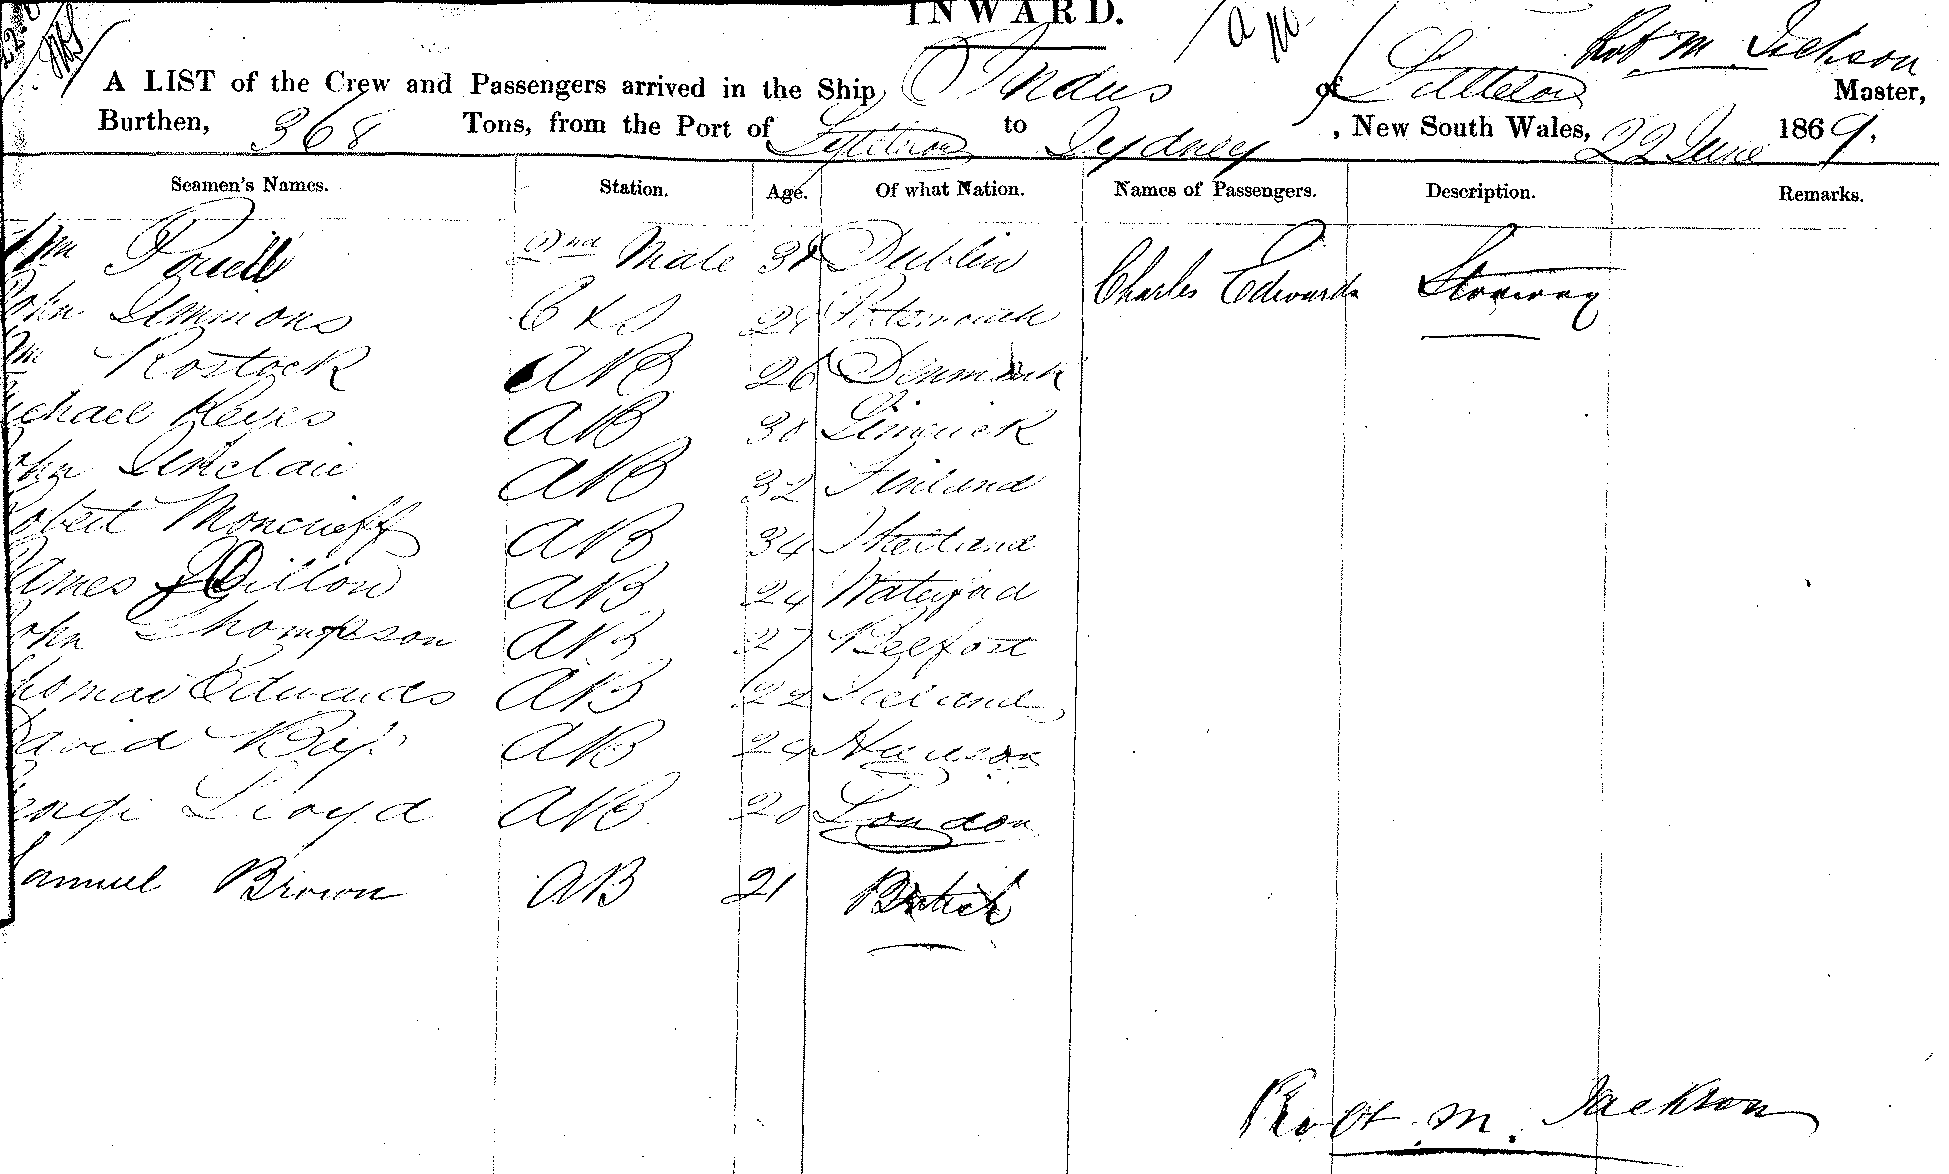 INWARD.
Robt M Jackson
A LIST of the Crew and Passengers arrived in the Ship Indus of Littleton Master,
Burthen, 368 Tons, from the Port of to Sydney, New South Wales, 22 June 1869.
Seamen's Names. Station. Age. Of what Nation. Names of Passengers. Description. Remarks.
Wm Powell 2nd Mate Dublin Charles Edwards Stowaway
John Simmons C & S
Wm Rostock AB 26 Denmark
Michael Keyes AB 30 Limerick
John Sinclair AB 32 Finland
Robert Moncrieff AB 34 Shetland
James Dillon AB 24 Waterford
John Thompson AB 27 Belfast
Thomas Edwards AB 22
David AB 24
Lloyd AB 20 London
Samuel Brown AB 21 British
Robt. M. Jackson